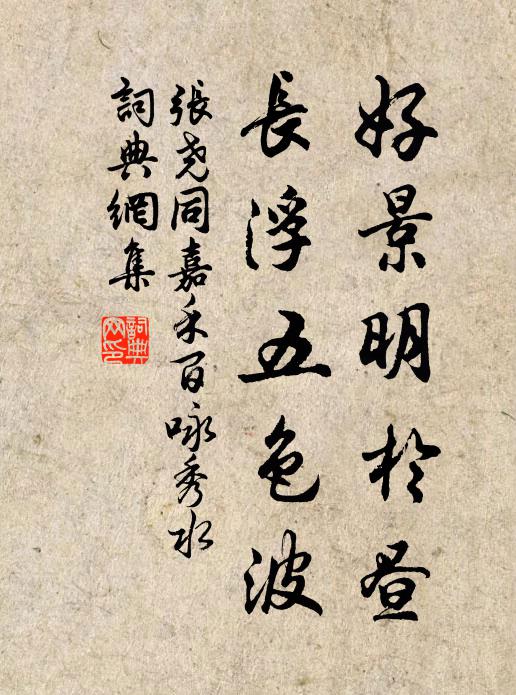 好景明於畫
長浮五色波
張尧同嘉禾百咏秀水
詞典網集
詞典網印